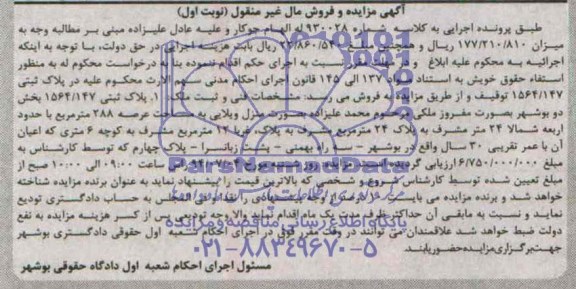 آگهی مزایده و فروش مال غیر منقول (نوبت اول)
طبق پرونده اجرایی به کلاسه شماره ۹۳۰۰۲۸ له الهام جوکار و علیه عادل علیزاده مبنی بر مطالبه وجه به
میزان ۱۷۷/۲۱۰/۸۱۰ ریال و همچنین مبلغ ریال بابت هزینه اجرایی در حق دولت، با توجه به اینکه
اجرائیه به محکوم علیه ابلاغ و در مهلت مقرر نسبت به اجرای حکم اقدام ننموده بنا به درخواست محکوم له به منظور
استفاء حقوق خویش به استناد مواد ۱۳۷ الی ۱۴۵ قانون اجرای احکام مدنی سهم الارث محکوم علیه در پلاک ثبتی
۱۵۶۴/۱۴۷ توقیف و از طریق مزایده به فروش می رسد: مشخصات فنی و ثبت ملک: ۱. پلاک ثبتی ۱۵۶۴/۱۴۷ بخش
دو بوشهر بصورت مفروز ملکی مرحوم محمد علیزاده بصورت منزل ویلایی به مساحت عرصه ۲۸۸ مترمربع با حدود
اربعه شمالا ۲۴ متر مشرف به پلاک ۲۴ مترمربع مشرف به پلاک، غربا ۱۲ مترمربع مشرف به کوچه ۶ متری که اعیان
آن با عمر تقریبی ۳۰ سال واقع در بوشهر – سه راه بهمنی – پشت زباترا – پلاک چهارم که توسط کارشناس به
مبلغ ۶/۷۵۰/۰۰۰/۰۰۰ ارزیابی گردیده است. مزایده روز سه شنبه مورخ ساعت ۰۹:۰۰ الی ۱۰:۰۰ صبح از
مبلغ تعیین شده توسط کارشناس شروع و شخصی که بالاترین قیمت را پیشنهاد نماید به عنوان برنده مزایده شناخته
خواهد شد و برنده مزایده می بایست از وجه پیشنهادی را نقدا فی المجلس به حساب دادگستری تودیع
نماید و نسبت به مابقی آن حداکثر ظرف مدت یک ماه اقدام نماید والا وجه تودیعی پس از کسر هزینه مزایده به نفع
دولت ضبط خواهد شد علاقمندان می توانند در وقت مقرر فوق در اجرای احکام شعبه اول حقوقی دادگستری بوشهر
جهت برگزاری مزایده حضور یابند.
مسئول اجرای احکام شعبه اول دادگاه حقوقی بوشهر
ParsNamadData
پایگاه اطلاع رسانی مناقصه و مزایده
۰۲۱-۸۸۳۴۹۶۷۰-۵